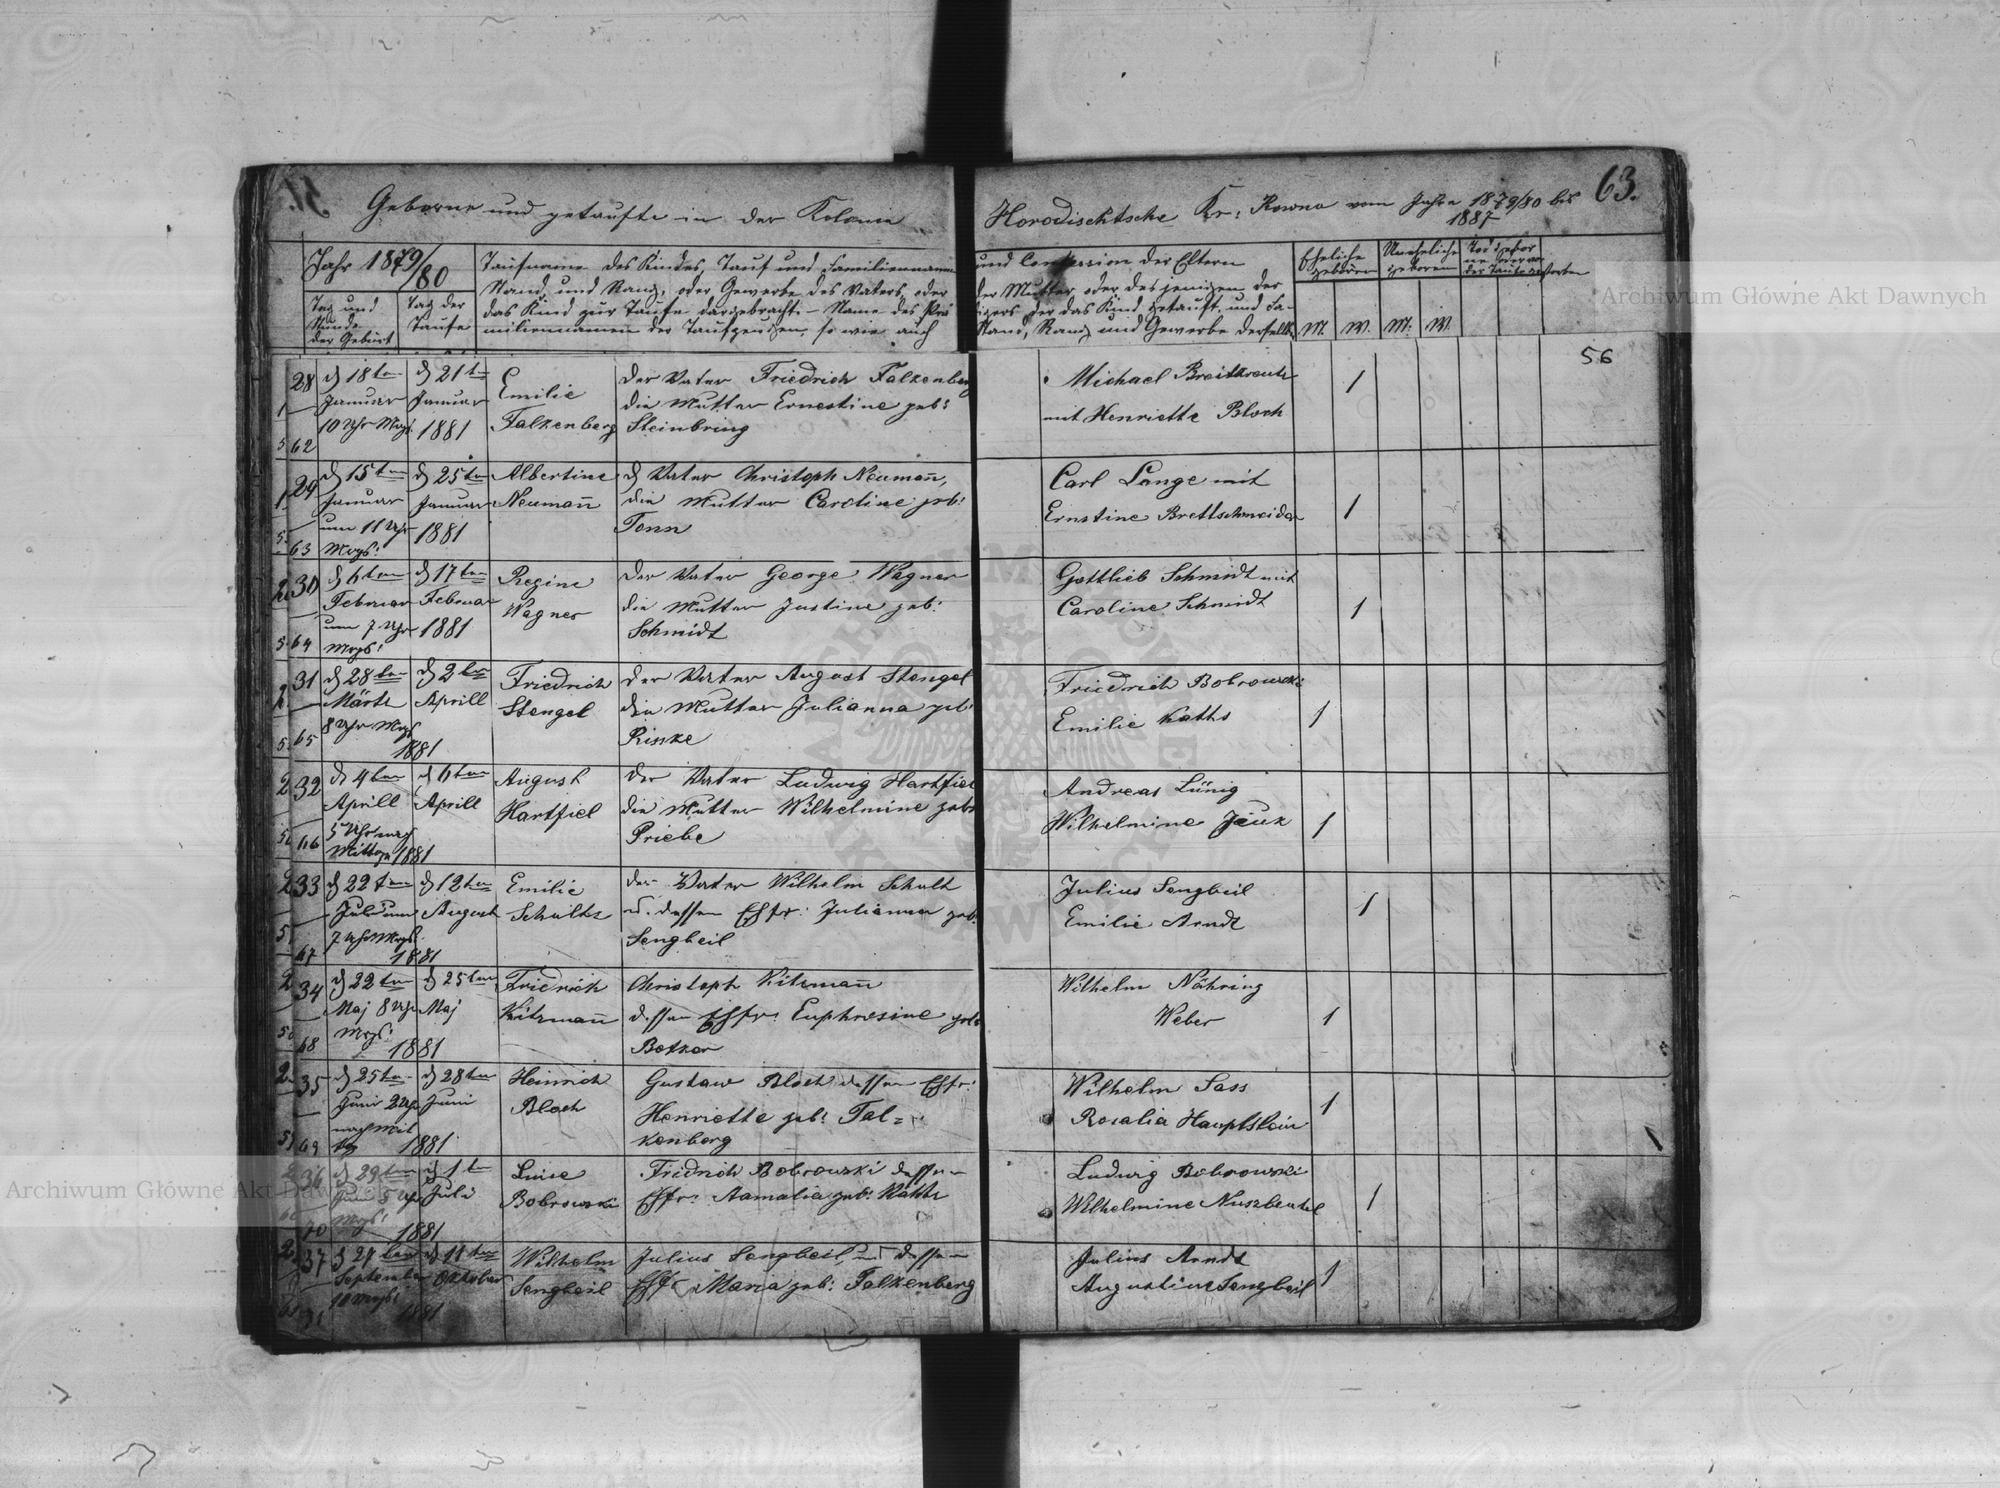 63.
Geborne und getaufte in der Kolonie Horodischtsche Kr: Rowno vom Jahre 1879/80 bis
1887
Jahr 1879/80
Tag und
Stunde
der Geburt
Tag der
Taufe
Taufname des Kindes, Tauf und Familienname
und Confession der Eltern
Stand, und Rang, oder Gewerbe des Vaters oder
der Mutter oder desjenigen der
das Kind zur Taufe dargebracht. Name des
der das Kind getauft, und Fa-
miliennamen der Taufzeugen, so wie auch
Stand, Rang und Gewerbe derselben
Eheliche
geboren
Uneheliche
geboren
der Taufe gestorben
M. W. M: W.
56
28
1
5 62
d 18ten
Januar
10 Uhr Morgs.
d 21ten
Januar
1881
Emilie
Falkenberg
Der Vater Friedrich Falkenberg
die Mutter Ernestine geb:
Steinbring
Michael Breitkreutz
mit Henriette Bloch
1
29
1
5 63
d 15ten
Januar
um 11 Uhr
Morgs:
d 25ten
Januar
1881
Albertine
Neumañ
d Vater Christoph Neumañ,
die Mutter Caroline geb:
Tonn
Carl Lange mit
Ernstine Brettschneider
1
30
2
5 64
d 6ten
Februar
um 7 Uhr
Morgs:
d 17ten
Februar
1881
Regine
Wagner
Der Vater George Wagner
die Mutter Justine geb:
Schmidt
Gottlieb Schmidt mit
Caroline Schmidt
1
31
2
5 65
d 28ten
Märtz
8 Uhr Morgs
d 2ten
Aprill
1881
Friedrich
Stengel
Der Vater August Stengel
die Mutter Julianna geb:
Rinke
Friedrich Bobrowski
Emilie Kaths
1
2 32
5 66
d 4ten
Aprill
5 Uhr nach
Mittags
d 6ten
Aprill
1881
August
Hartfiel
Der Vater Ludwig Hartfiel
die Mutter Wilhelmine geb:
Priebe
Andreas Lünig
Wilhelmine
1
2 33
5 67
d 22ten
Juli um
7 Uhr Morgs.
d 12ten
August
1881
Emilie
Schultz
der Vater Wilhelm Schult
u. dessen Ehfr: Julianna geb:
Sengbeil
Julius Sengbeil
Emilie Arndt
1
2 34
5 68
d 22ten
Maj 8 Uhr
Morgs:
d 25ten
Maj
1881
Friedrich
Kitzmañ
Christoph Kitzmañ
dessen Ehfr: Euphrosine geb:
Betker
Wilhelm Nähring
Weber
1
2 35
5 69
d 25ten
Juni 2 Uhr
nach Mit
tg
d 28ten
Juni
1881
Heinrich
Bloch
Gustaw Bloch dessen Ehfr:
Henriette geb: Fal=
kenberg
Wilhelm Sass
Rosalia Hauptstein
1
2 36
70
d 29ten
Juni 5 Uhr
Morgs:
d 1ten
Juli
1881
Luise
Bobrowski
Fridrich Bobrowski dessen
Ehfr: Aamalia geb: Kathz
Ludwig Bobrowski
Wilhelmine Nuszbeutel
1
2 37
71
September
10 Morgs:
d 11ten
Oktober
1881
Wilhelm
Sengbeil
Julius Sengbeil, und dessen
Ehfr: Maria geb: Falkenberg
Julius Arndt
Augustine Sengbeil
1
Archiwum Główne Akt Dawnych
Archiwum Główne Akt Dawnych